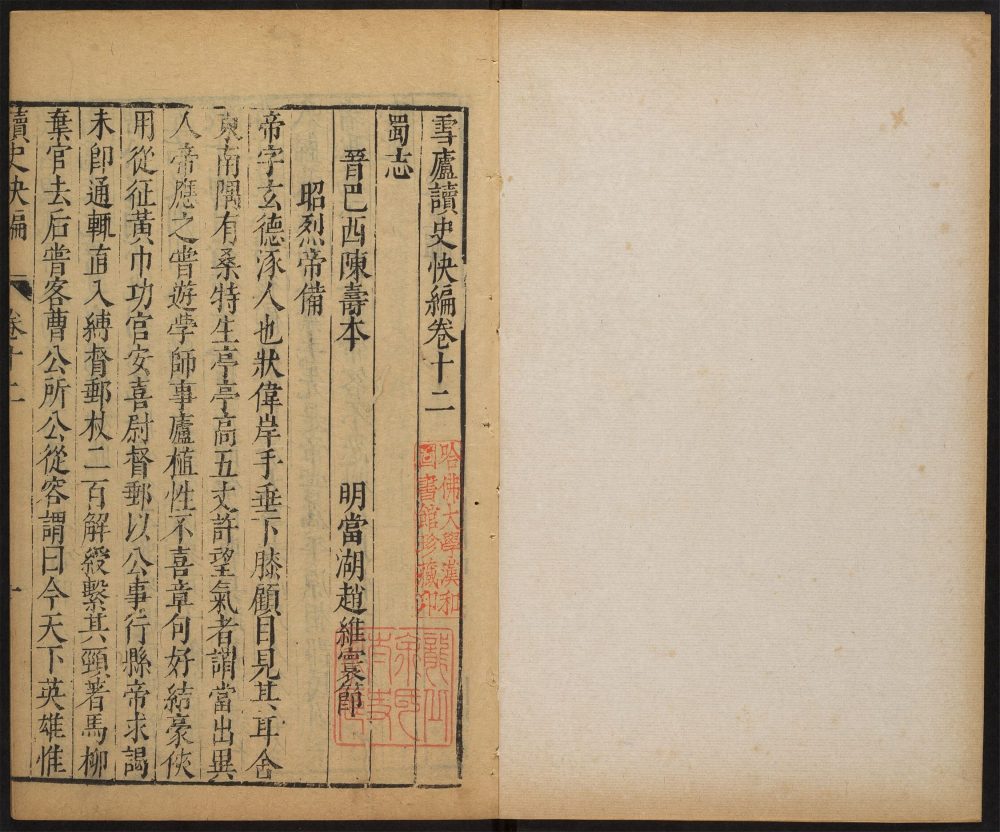 雪廬讀史快編卷十二
蜀志
晉巴西陳壽本 明當湖趙維寰節
昭烈帝備
帝字玄德涿人也狀偉岸手垂下膝顧目見其耳舍
東南隅有桑特生亭亭高五丈許望氣者謂當出異
人帝應之嘗遊學師事廬植性不喜章句好結豪俠
用從征黃巾功官安喜尉督郵以公事行縣帝求謁
未卽通輒直入縛督郵杖二百解綬繫其頸著馬柳
棄官去后嘗客曹公所公從容謂曰今天下英雄惟
讀史快編 卷十二 一
哈佛大學漢和
圖書館珍藏印